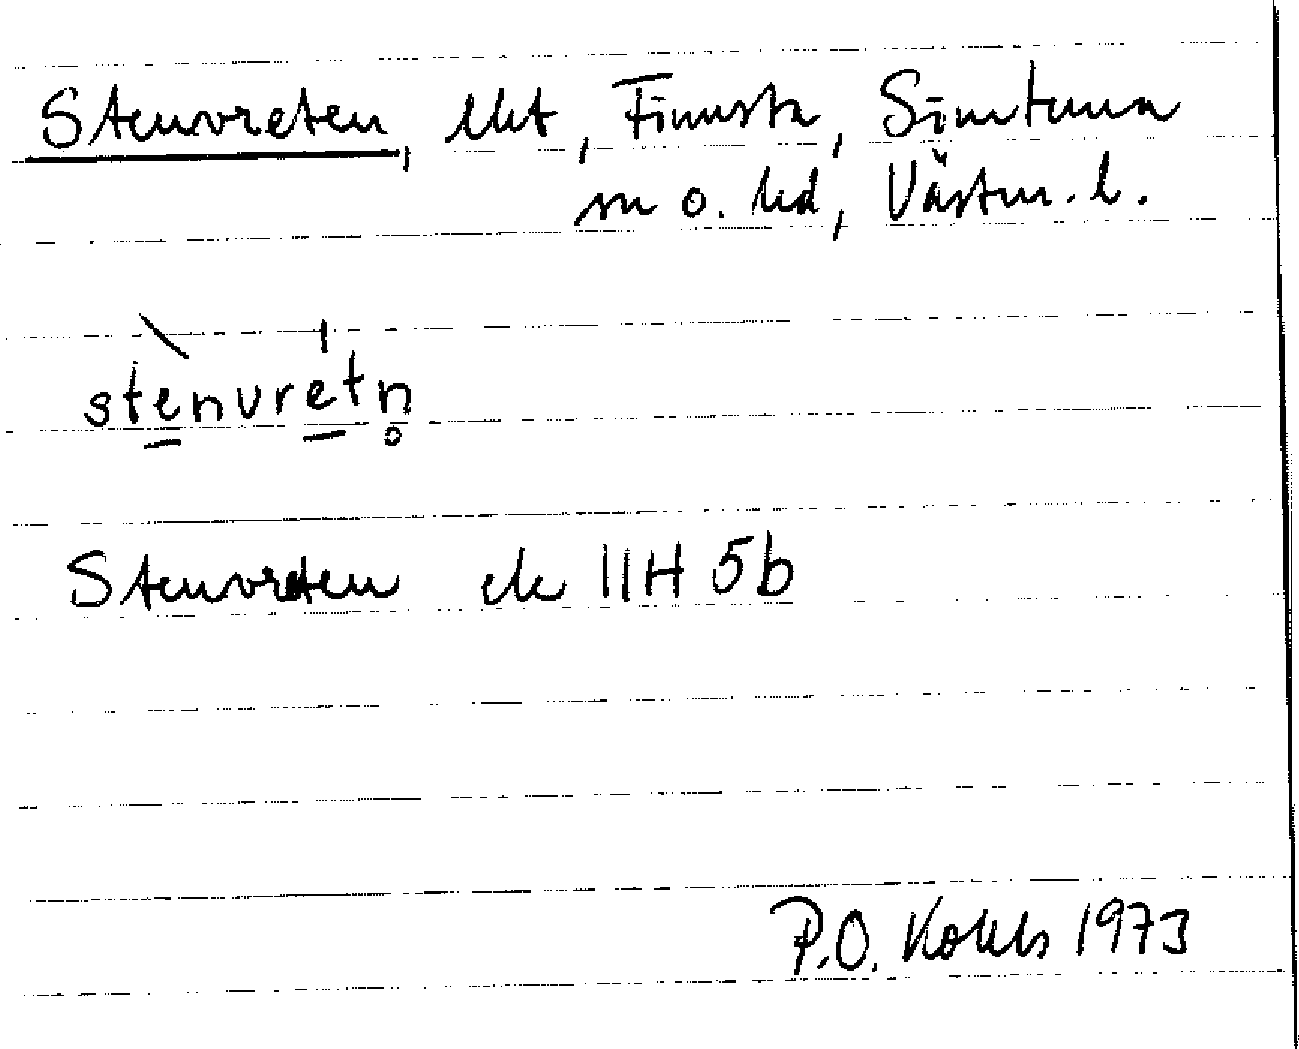 Stenvreten, lht, Finnsta, Simtuna
sn o. hd, Västm. l.
stenvretn̥
Stenvreten ek 11H 5b
P.O. 1973